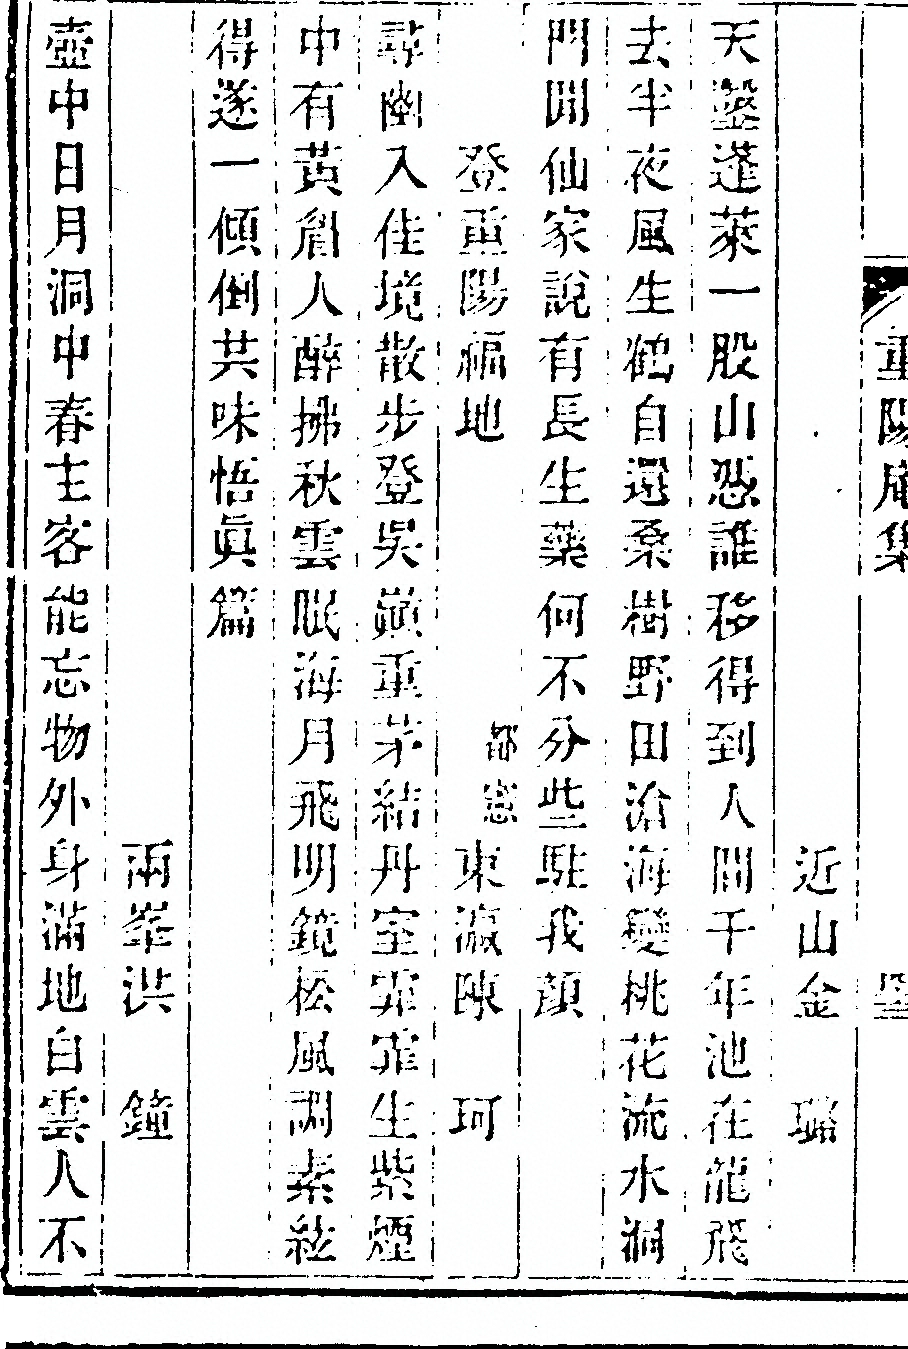 重陽庵集
近山金　璐
天鑿蓬萊一股山憑誰移得到人間千年池在龍飛
去半夜風生鶴自還桑樹野田滄海變桃花流水洞
門開仙家說有長生藥何不分些駐我顏
登重陽福地　都憲東瀛陳　珂
尋幽入佳境散步登吳巔重茅結丹室霏霏生紫煙
中有黃眉人醉拂秋雲眠海月飛明鏡松風調素絃
得遂一傾倒共味悟眞篇
兩峯洪　鐘
壺中日月洞中春主客能忘物外身滿地白雲人不